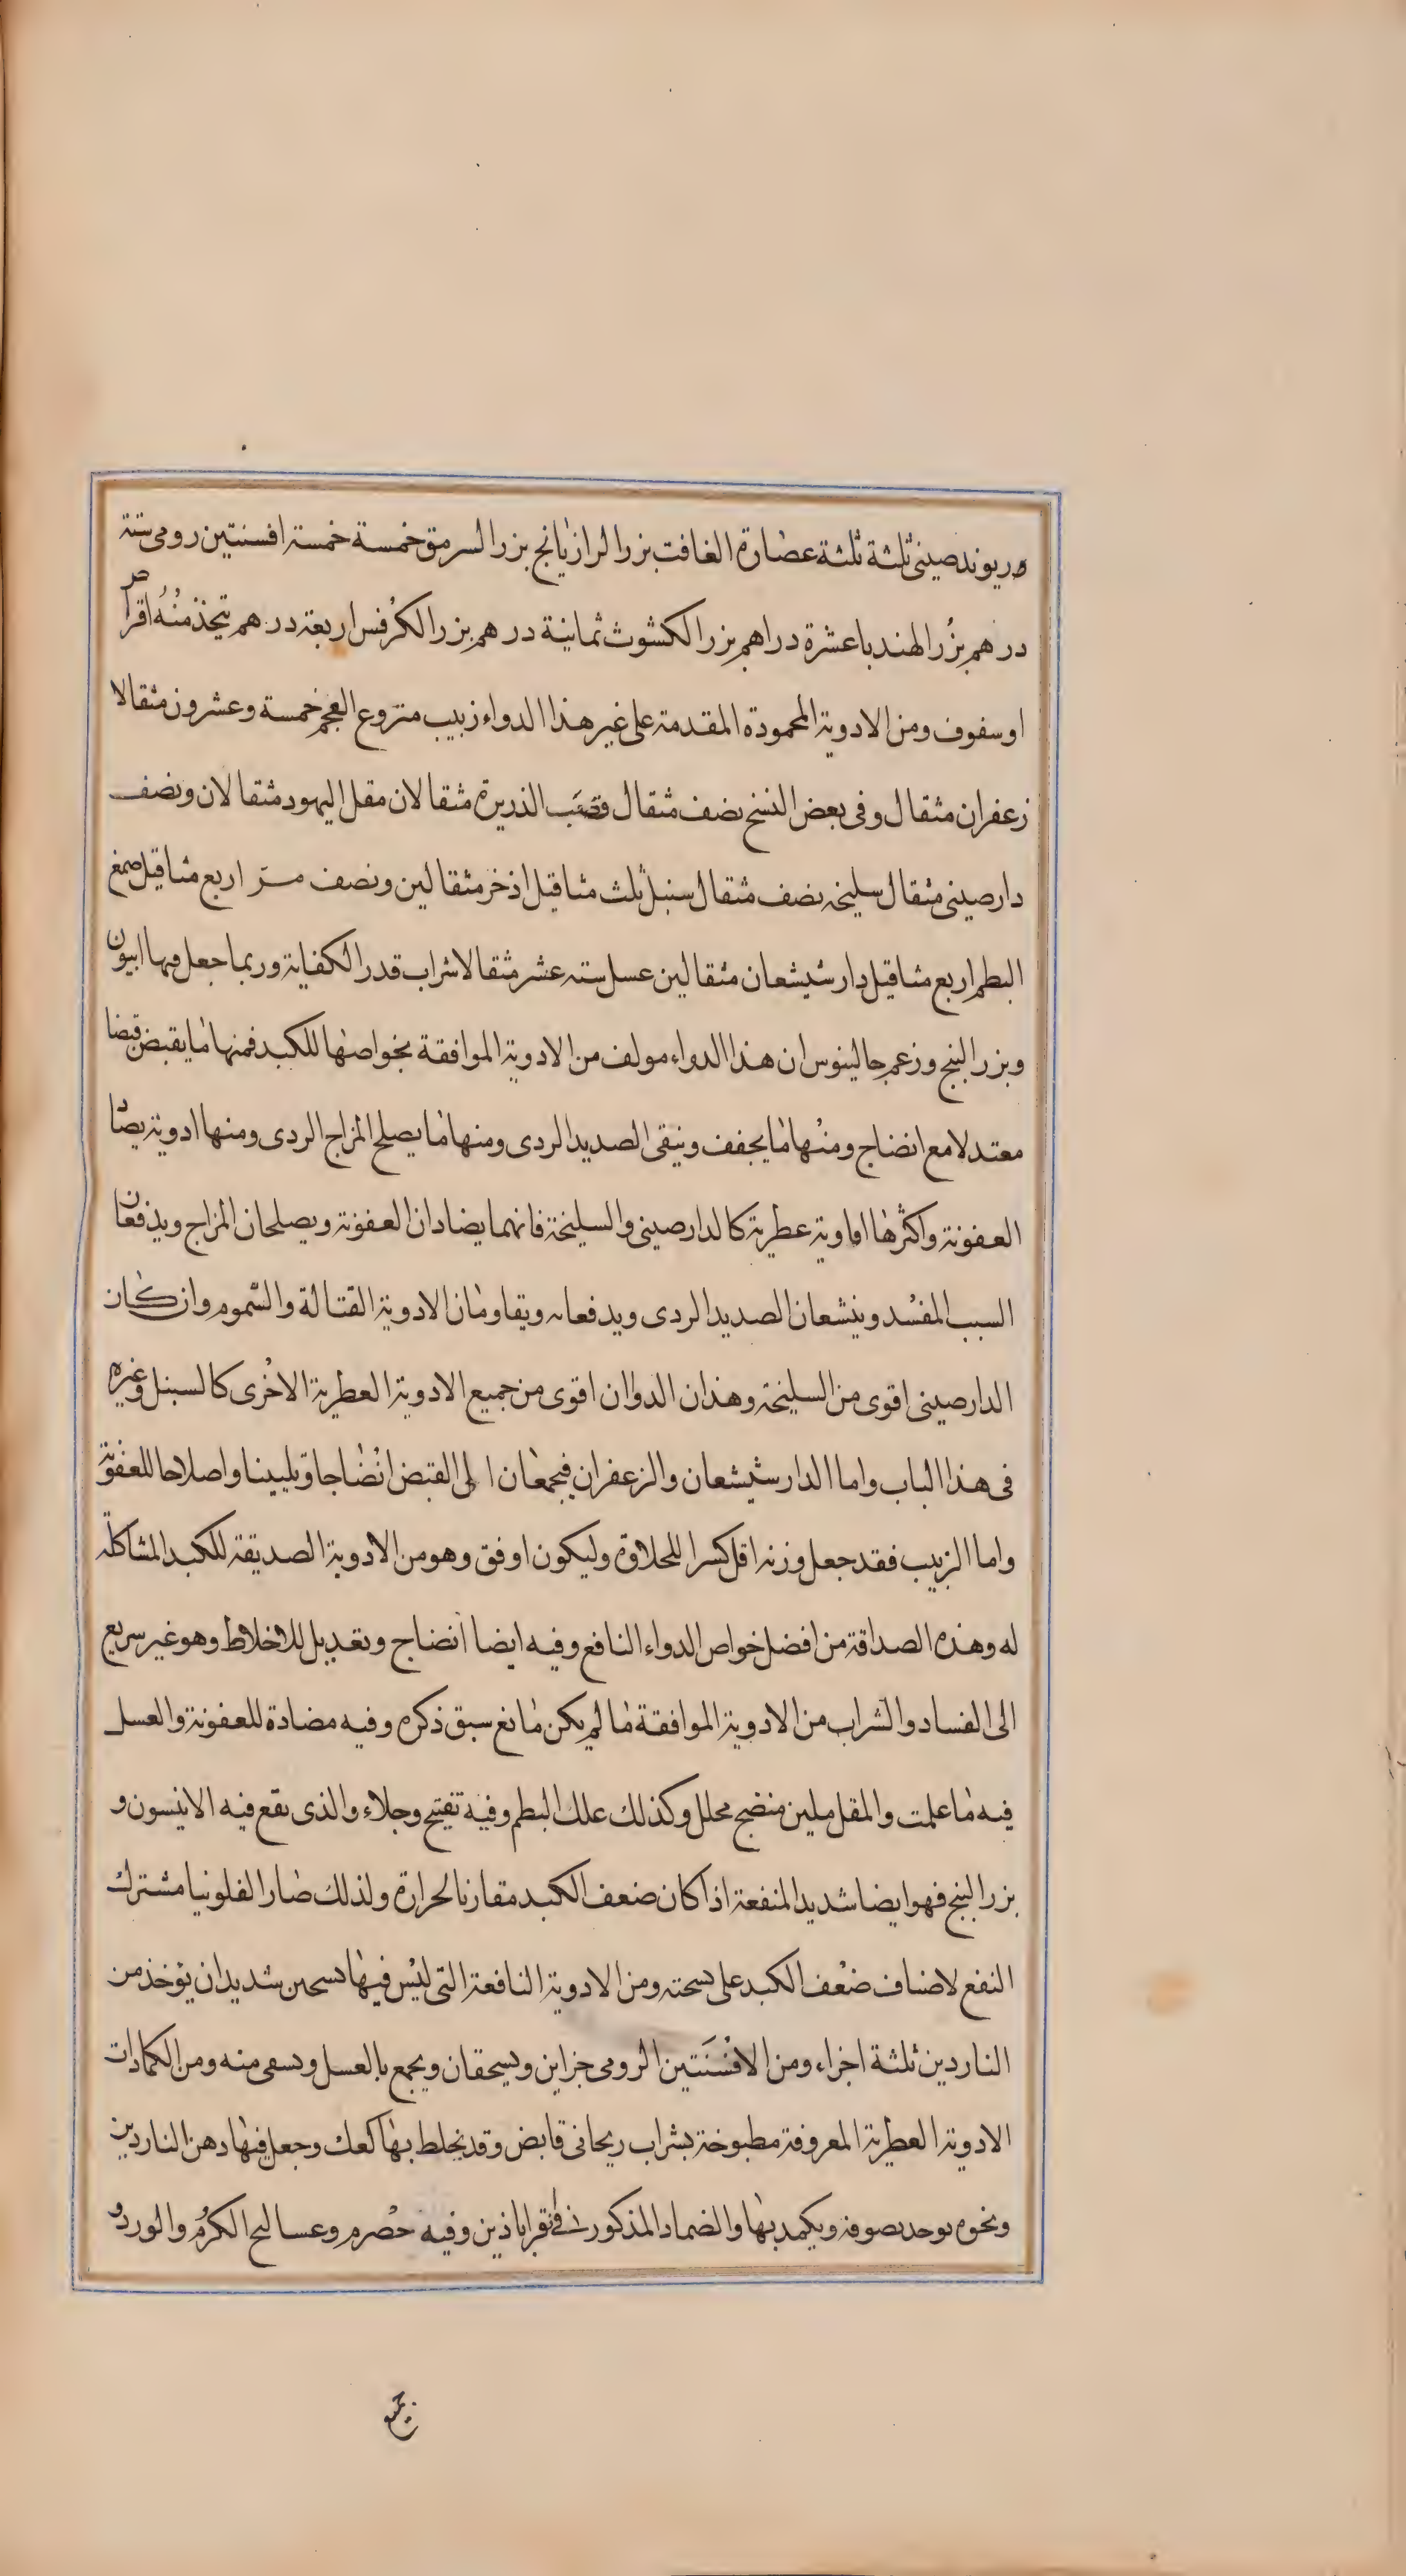 وريوند صينى ثلثة ثلثة عصارة الغافت بزر الرازيانج بزر السرمق خمسة خمسة افسنتين رومى ستة
درهم بزر الهندبا عشرة دراهم بزر الكشوث ثمانية درهم بزر الكرفس اربعة درهم يتخذ منه اقراص
او سفوف ومن الادوية المحمودة المقدمة على غير هذا الدواء زبيب منزوع العجم خمسة وعشرون مثقالا
زعفران مثقال وفى بعض النسخ نصف مثقال وقصب الذريرة مثقالان مقل اليهود مثقالان ونصف
دارصينى مثقال سليخه نصف مثقال سنبل ثلث مثاقيل اذخر مثقالين ونصف مر اربع مثاقيل صمغ
البطم اربع مثاقيل دارشيشعان مثقالين عسل ستة عشر مثقالا شراب قدر الكفاية وربما جعل فيها ابيون
وبزر البنج وزعم جالينوس ان هذا الدواء مولف من الادوية الموافقة بخواصها للكبد فمنها ما يقبض قبضا
معتدلا مع انضاج ومنها ما يجفف وينقى الصديد الردى ومنها ما يصلح المزاج الردى ومنها ادوية يضاد
العفونة واكثرها افاوية عطرية كالدارصينى والسليخة فانهما يضادان العفونة ويصلحان المزاج ويدفعان
السبب المفسد وينشعان الصديد الردى ويدفعانه ويقاومان الادوية القتالة والسموم وان كان
الدارصينى اقوى من السليخة وهذان الدوان اقوى من جميع الادوية العطرية الاخرى كالسنبل وغيره
فى هذا الباب واما الدارشيشعان والزعفران فيجمعان الى القبض انضاجا وتليينا واصلاحا للعفونة
واما الزبيب فقد جعل وزنه اقل كسرا للحلاوة وليكون اوفق وهو من الادوية الصديقة للكبد المشاكلة
له وهذه الصداقة من افضل خواص الدواء النافع وفيه ايضا انضاج وتعديل للاخلاط وهو غير سريع
الى الفساد والشراب من الادوية الموافقة ما لم يكن مانع سبق ذكره وفيه مضادة للعفونة والعسل
فيه ما علمت والمقل ملين منضج محلل وكذلك علك البطم وفيه تفتيح وجلاء والذى يقع فيه الانيسون و
بزر البنج فهو ايضا شديد المنفعة اذا كان ضعف الكبد مقارنا لحرارة ولذلك صار الفلونيا مشترك
النفع لاصناف ضعف الكبد على نسخته ومن الادوية النافعة التى ليس فيها تسخين شديد ان يؤخذ من
الناردين ثلثة اجزاء ومن الافسنتين الرومى جزاين ويسحقان ويجمع بالعسل ويسقى منه ومن الكمادات
الادوية العطرية المعروفة مطبوخة بشراب ريحانى قابض وقد يخلط بها كعك وجعل فيها دهن الناردين
ونحوه يوخذ بصوفة ويكمد بها والضماد المذكور فى قراباذين وفيه حصرم وعساليج الكرم والورد و
جميع